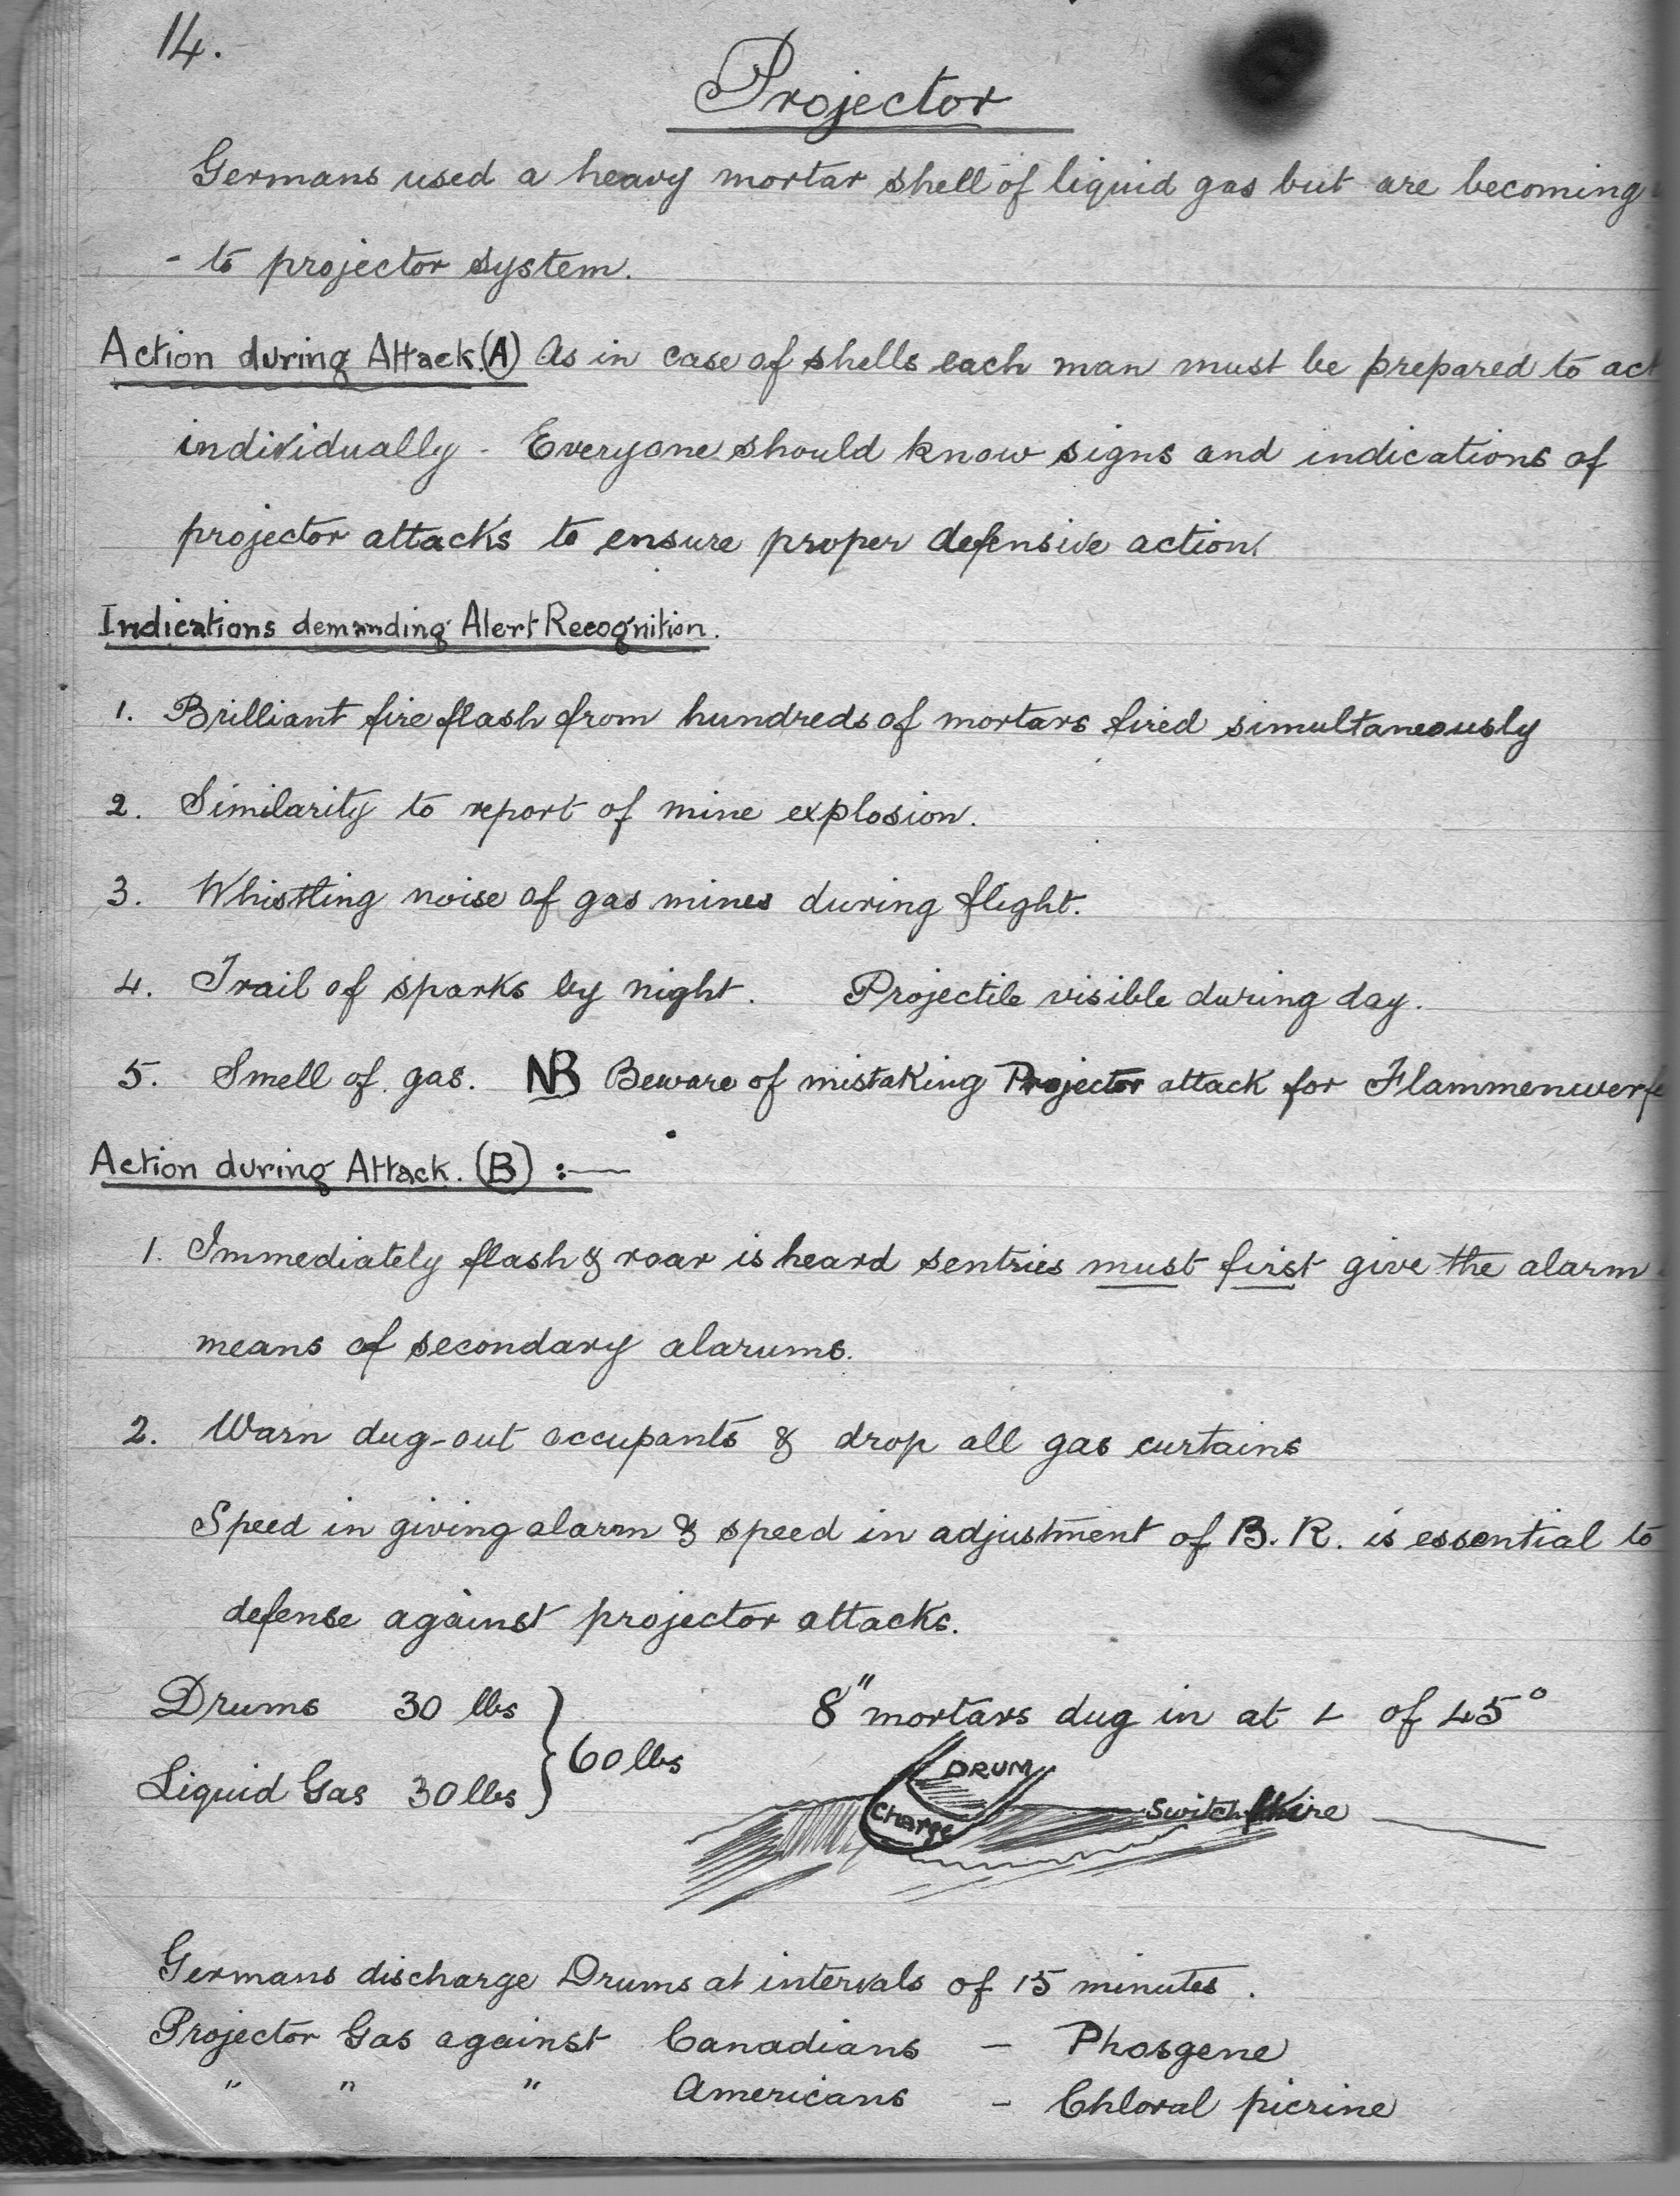 14.
Projector
Germans used a heavy mortar shell of liquid gas but are becoming
- to projector system.
Action during Attack. (A) As in case of shells each man must be prepared to act
individually - Everyone should know signs and indications of
projector attacks to ensure proper defensive action.
Indications demanding Alert Recognition.
1. Brilliant fire flash from hundreds of mortars fired simultaneously
2. Similarity to report of mine explosion.
3. Whistling noise of gas mines during flight.
4. Trail of sparks by night. Projectile visible during day.
5. Smell of gas. NB Beware of mistaking Projector attack for Flammenwerfe
Action during Attack. (B) :—
1. Immediately flash & roar is heard sentries must first give the alarm
means of secondary alarums.
2. Warn dug-out occupants & drop all gas curtains
Speed in giving alarm & speed in adjustment of B.R. is essential to
defense against projector attacks.
Drums 30 lbs } 60 lbs
Liquid Gas 30 lbs
8" mortars dug in at ∠ of 45°
DRUM
Charge
Switch Wire
Germans discharge Drums at intervals of 15 minutes.
Projector Gas against Canadians - Phosgene
" " " Americans - Chloral picrine